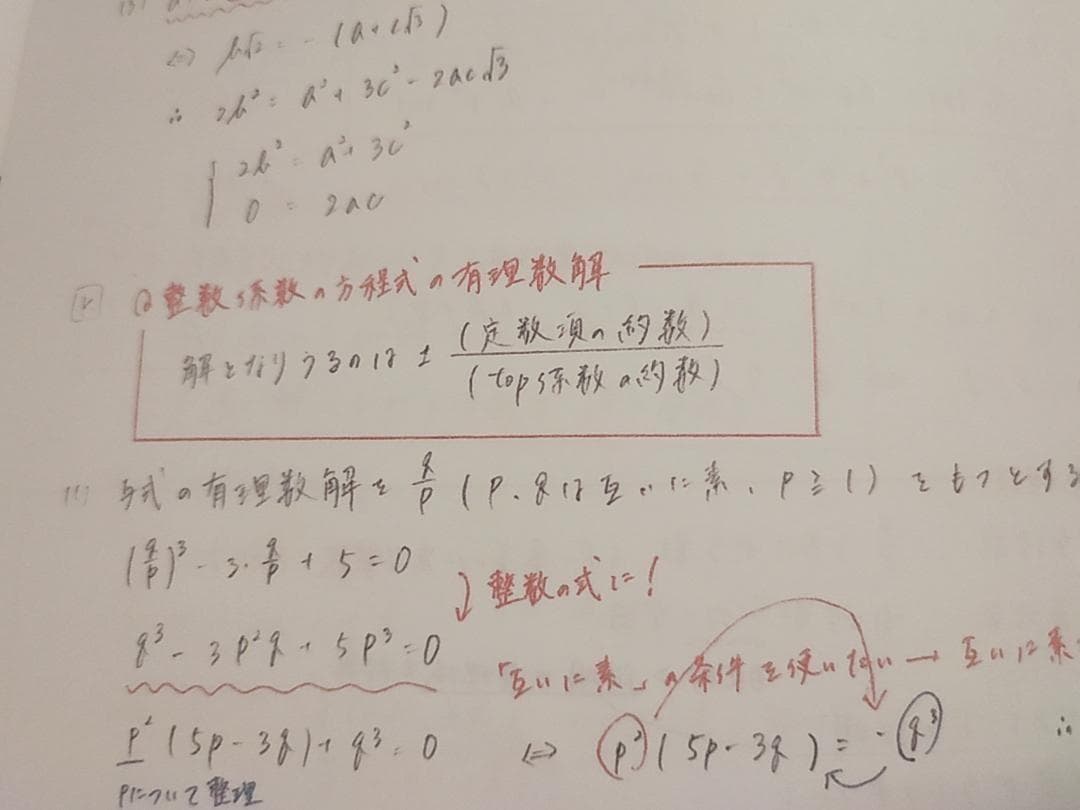 (3)
⇔ b√2 = -(a+c√3)
∴ 2b² = a²+3c²-2ac√3
{ 2b² = a²+3c²
0 = 2ac
整数係数の方程式の有理数解
解となりうるのは ± (定数項の約数)/(top係数の約数)
(1) 与式の有理数解を q/p (p、qは互いに素、p≧1) をもつとする
(q/p)³ - 3・q/p + 5 = 0
整数の式に!
q³ - 3p²q + 5p³ = 0
「互いに素」の条件を使いたい → 互いに素
p²(5p-3q)+q³ = 0 ⇔ p²(5p-3q) = -q³ ∴
pについて整理